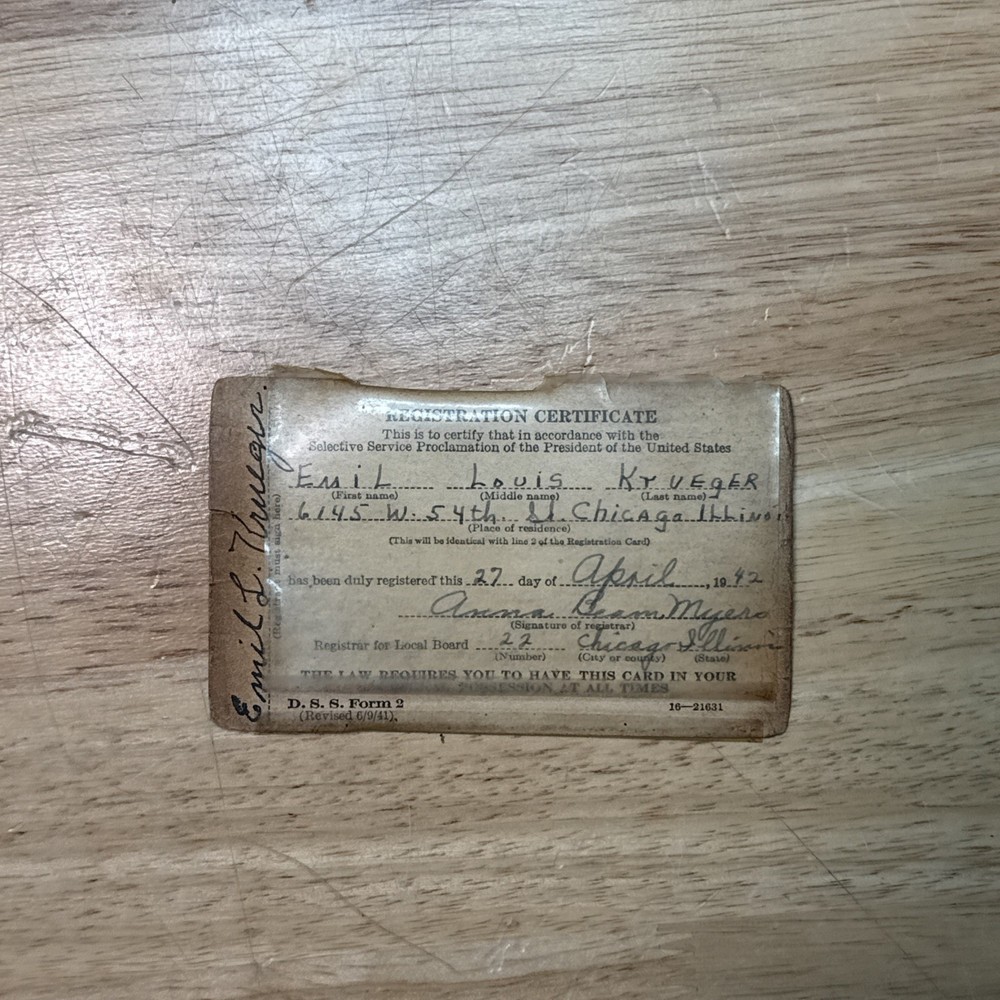 REGISTRATION CERTIFICATE
This is to certify that in accordance with the
Selective Service Proclamation of the President of the United States
Emil Louis KrUEgER
(First name) (Middle name) (Last name)
6145 W. 54th St. ChicAgo ILLinois
(Place of residence)
(This will be identical with line 2 of the Registration Card)
has been duly registered this 27 day of April, 1942
Anna Beam Myers
(Signature of registrar)
Registrar for Local Board 22 Chicago Illinois
(Number) (City or county) (State)
THE LAW REQUIRES YOU TO HAVE THIS CARD IN YOUR
POSSESSION AT ALL TIMES
D. S. S. Form 2 16—21631
(Revised 6/9/41)
Emil L. Krueger.
must sign here)